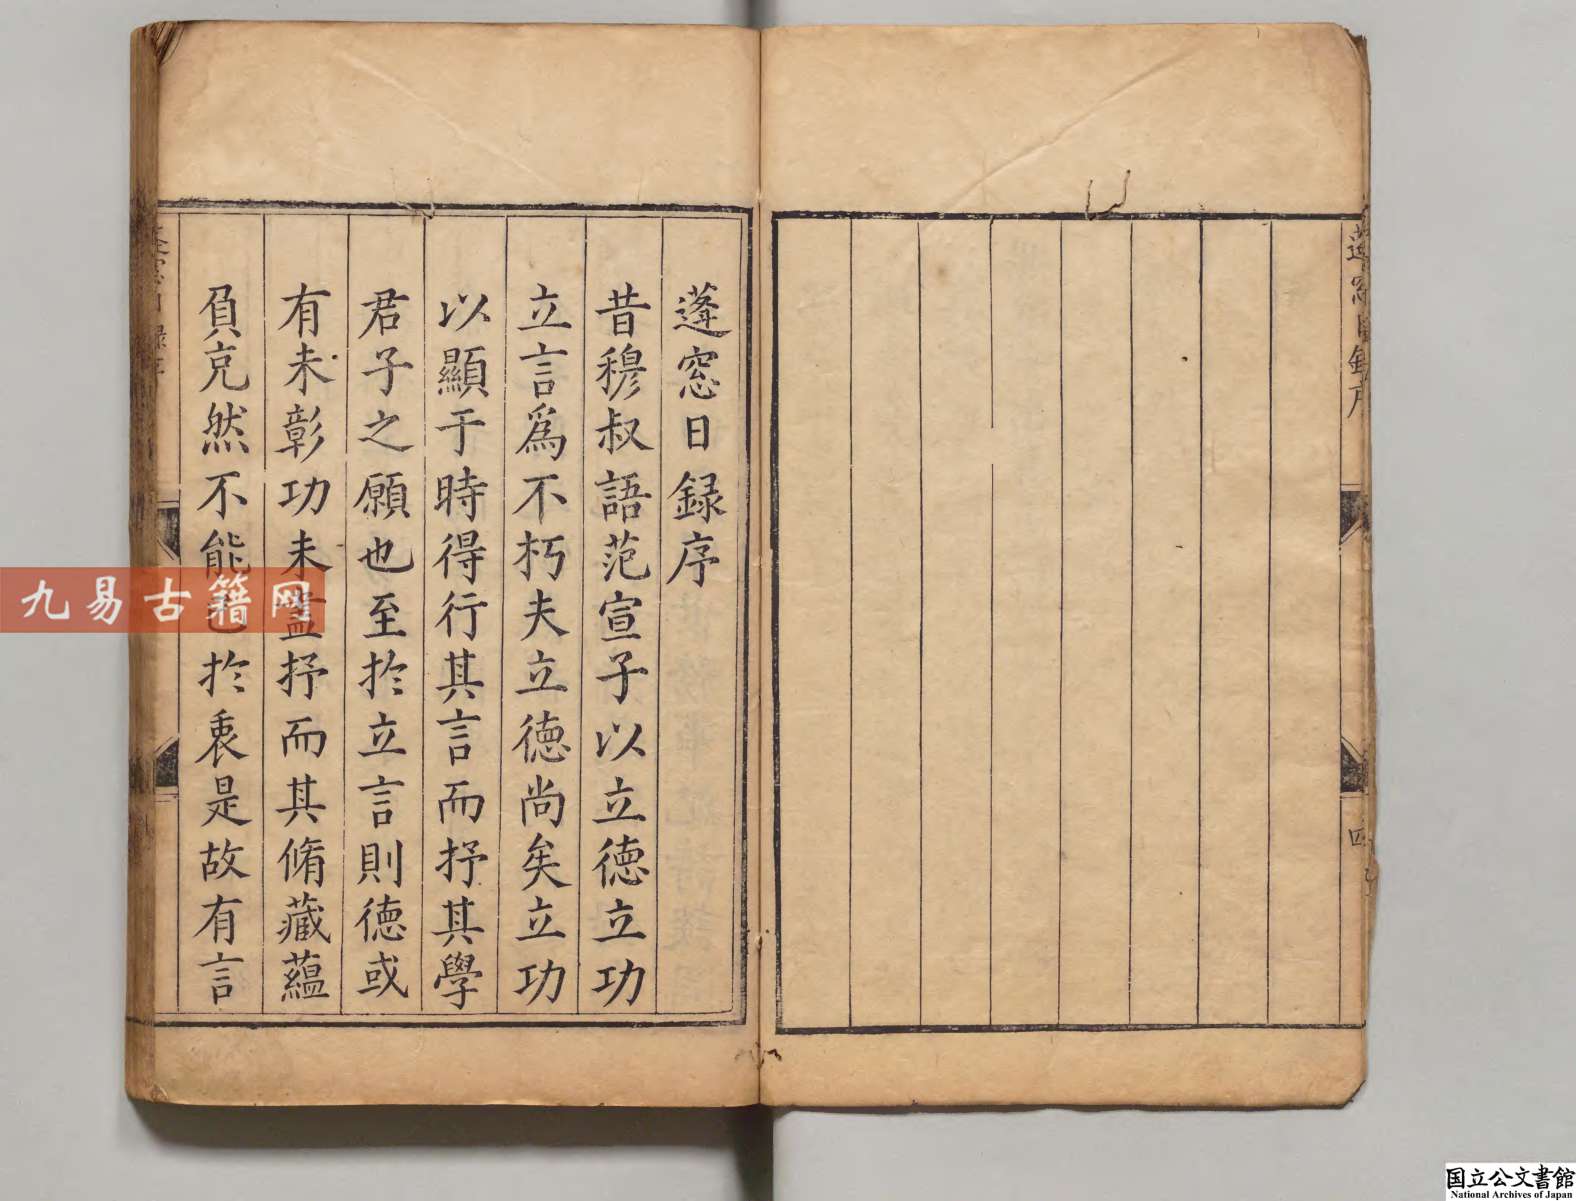 蓬窓日録序
昔穆叔語范宣子以立德立功
立言爲不朽夫立德尚矣立功
以顯于時得行其言而抒其學
君子之願也至扵立言則德或
有未彰功未盡抒而其脩藏藴
負克然不能已扵衷是故有言
蓬窓日録序
四
九易古籍网
国立公文書館
National Archives of Japan